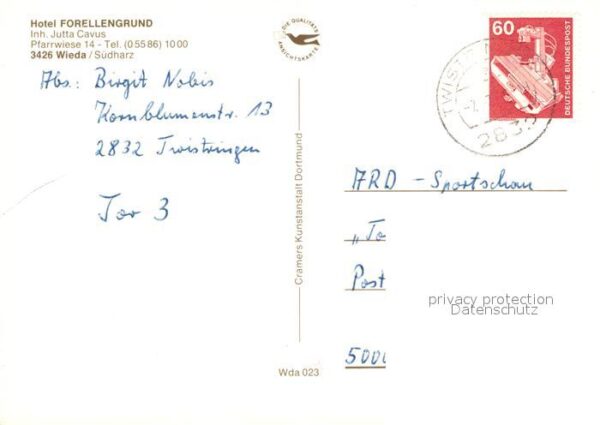 Hotel FORELLENGRUND
Inh. Jutta Cavus
Pfarrwiese 14 - Tel. (0 55 86) 10 00
3426 Wieda / Südharz
Abs.: Birgit Nobis
Kornblumenstr. 13
2832 Twistringen
Tor 3
Cramers Kunstanstalt Dortmund
Wda 023
DIE QUALITÄTS
ANSICHTSKARTE
60
DEUTSCHE BUNDESPOST
ARD - Sportschau
„To
Post
5000
privacy protection
Datenschutz